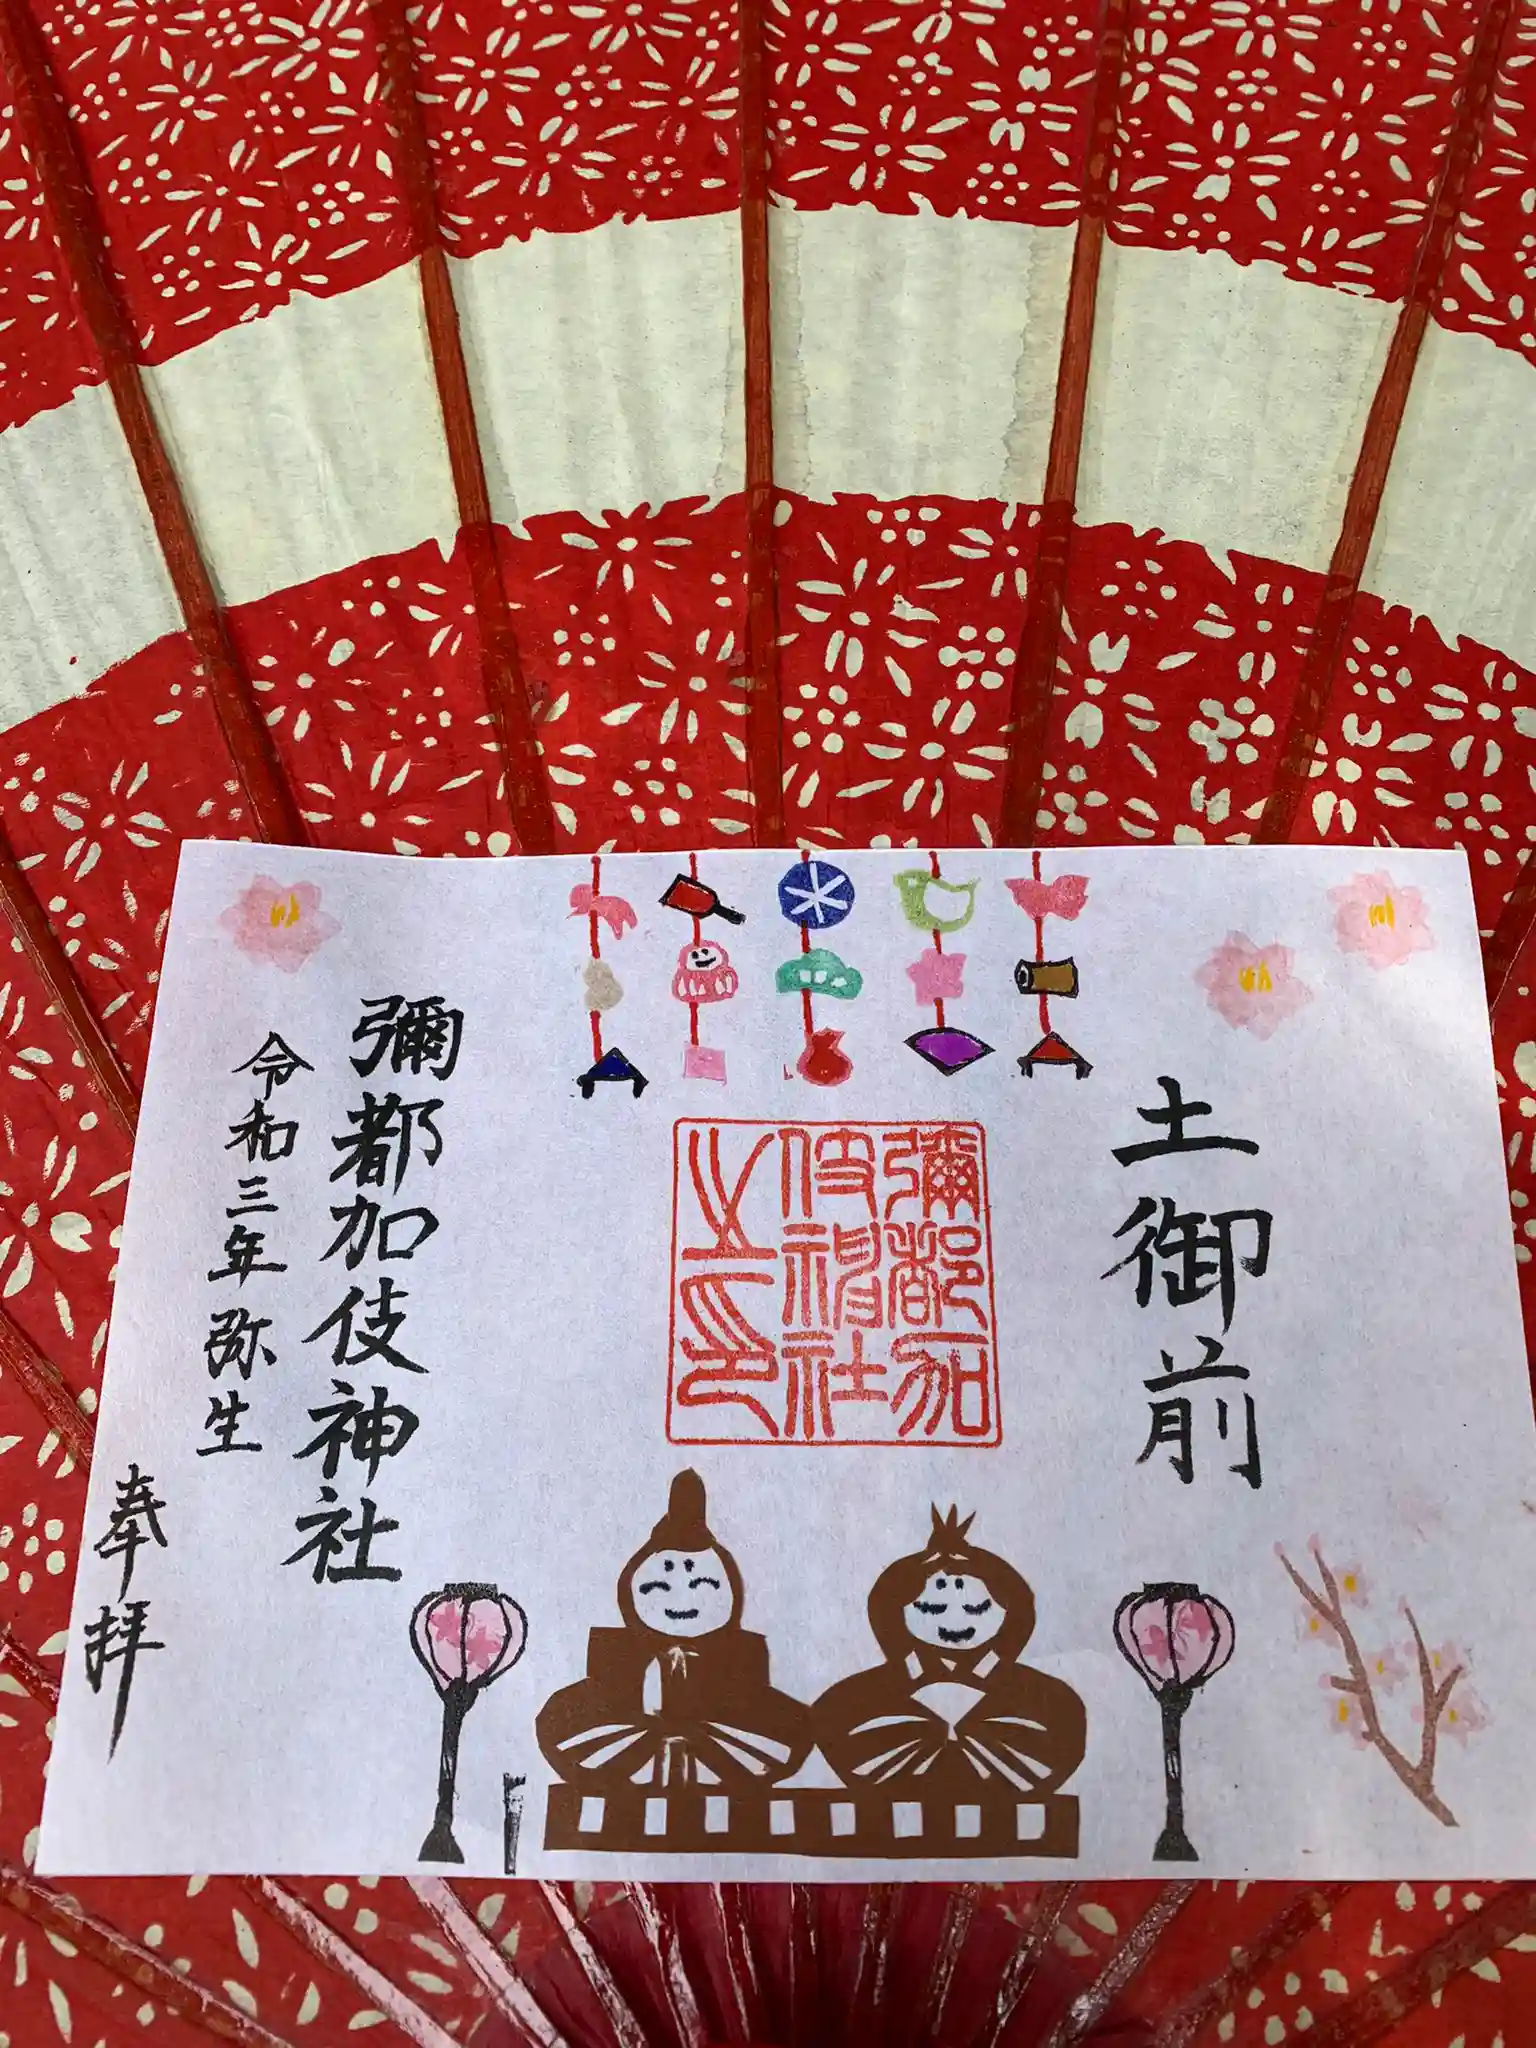 土御前
彌都加
伎神社
之印
彌都加伎神社
令和三年 弥生
奉拝